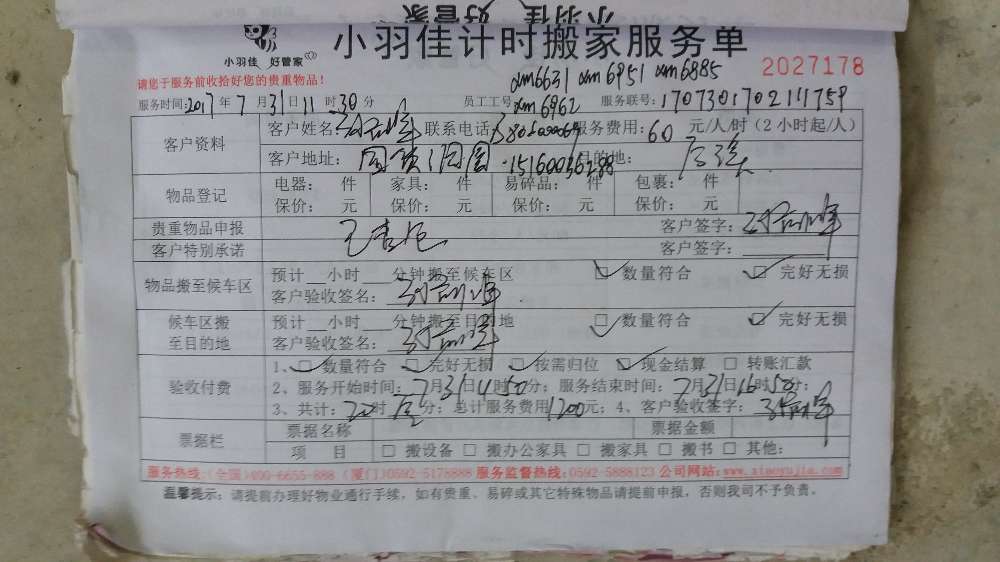 小羽佳 好管家
小羽佳 好管家
小羽佳计时搬家服务单
请您于服务前收拾好您的贵重物品！
xm6631 xm6951 xm6885
2027178
服务时间：2017年7月31日11时30分 员工工号 xm6962 服务联号：170730170211759
客户资料
客户姓名： 联系电话 服务费用：60元/人/时（2小时起/人）
客户地址： 15160036288 目的地：
物品登记
电器： 件 家具： 件 易碎品： 件 包裹： 件
保价： 元 保价： 元 保价： 元 保价： 元
贵重物品申报 客户签字：
客户特别承诺 客户签字：
物品搬至候车区
预计__小时__分钟搬至候车区 ☑数量符合 ☑完好无损
客户验收签名：
候车区搬至目的地
预计__小时__分钟搬至目的地 ☑数量符合 ☑完好无损
客户验收签名：
验收付费
1、☑数量符合 ☑完好无损 ☑按需归位 ☑现金结算 □转账汇款
2、服务开始时间：7月31日14时50分；服务结束时间：7月31日16时50分；
3、共计：20时 分；总计服务费用1200元；4、客户验收签字：
票据栏
票据名称 票据金额
项 目 □搬设备 □搬办公家具 □搬家具 □搬书 □其他：
服务热线：(全国)400-6655-888 (厦门)0592-5178888 服务监督热线:0592-5888123 公司网站:www.xiaoyujia.com
温馨提示：请提前办理好物业通行手续，如有贵重、易碎或其它特殊物品请提前申报，否则我司不予负责。